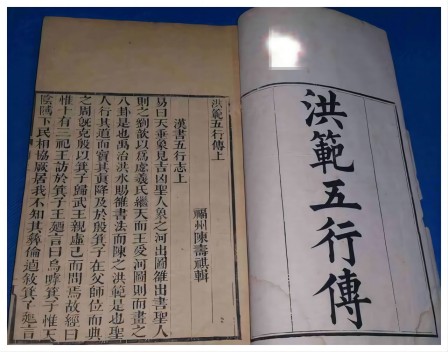 洪範五行傳
洪範五行傳上
福州陳壽祺輯
漢書五行志上
易曰天垂象見吉凶聖人象之河出圖雒出書聖人
則之劉歆以爲虙羲氏繼天而王受河圖則而畫之
八卦是也禹治洪水賜雒書法而陳之洪範是也聖
人行其道而寶其眞降及於殷箕子在父師位而典
之周旣克殷以箕子歸武王親虛己而問焉故經曰
惟十有三祀王訪於箕子王迺言曰烏嘑箕子惟天
陰騭下民相協厥居我不知其彝倫逌敘箕子迺言
2